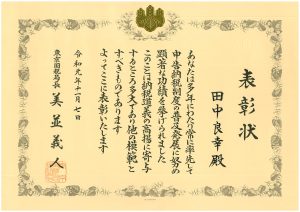 表彰状
田中良幸殿
あなたは多年にわたり常に率先して
申告納税制度の普及発展に努め
顕著な功績を挙げられました
このことは納税道義の高揚に寄与
するところ多大であり他の模範と
すべきものであります
よってここに表彰いたします
令和元年十一月七日
東京国税局長 美並義人